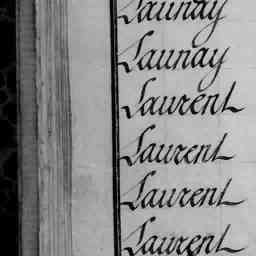 Launay
Launay
Laurent
Laurent
Laurent
Laurent